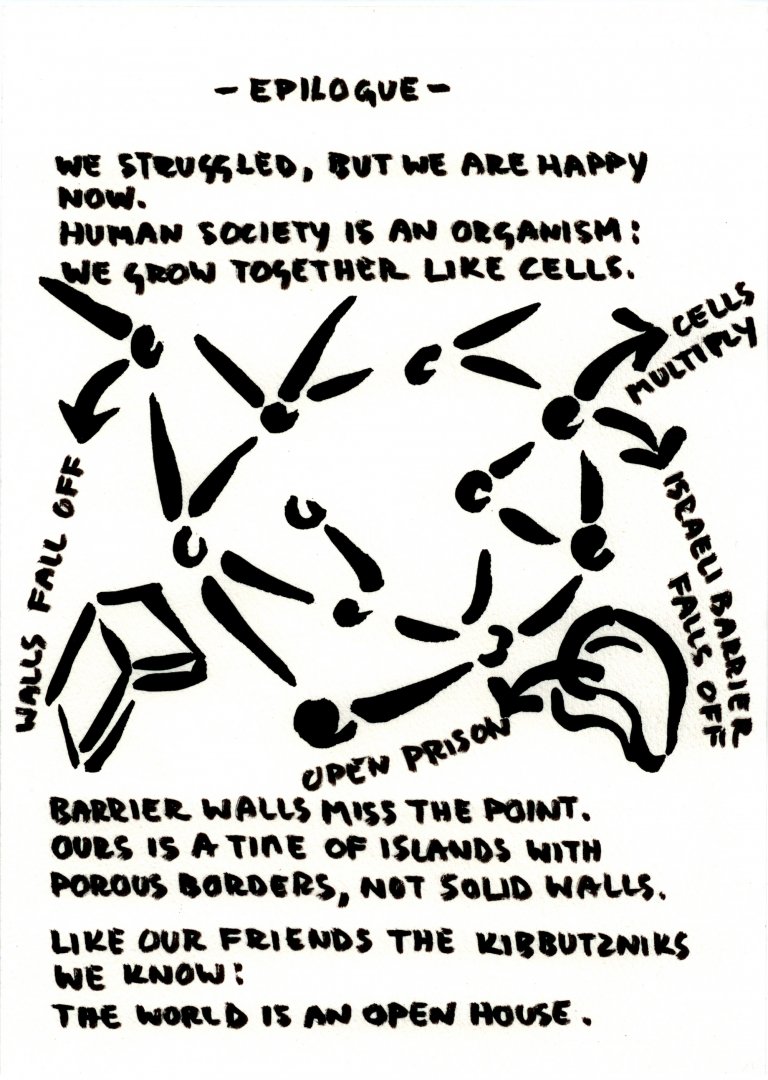 - EPILOGUE -
WE STRUGGLED, BUT WE ARE HAPPY
NOW.
HUMAN SOCIETY IS AN ORGANISM:
WE GROW TOGETHER LIKE CELLS.
CELLS
MULTIPLY
WALLS FALL OFF
ISRAELI BARRIER
FALLS OFF
OPEN PRISON
BARRIER WALLS MISS THE POINT.
OURS IS A TIME OF ISLANDS WITH
POROUS BORDERS, NOT SOLID WALLS.
LIKE OUR FRIENDS THE KIBBUTZNIKS
WE KNOW:
THE WORLD IS AN OPEN HOUSE.